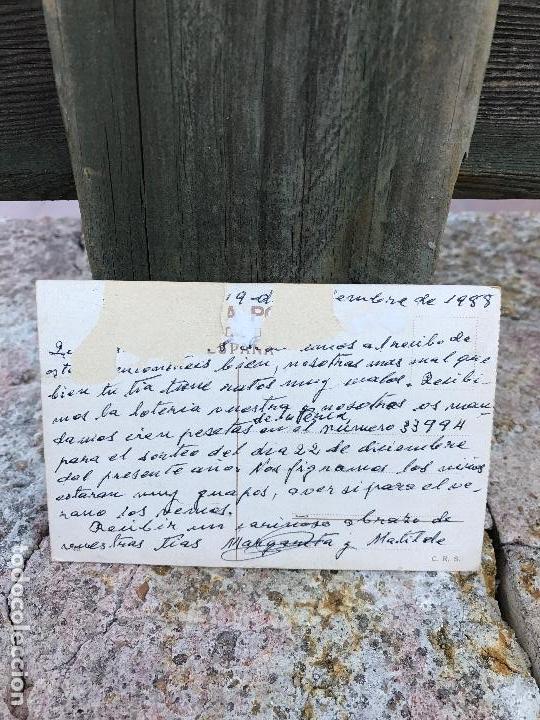 19 d embre de 1988
emos al recibo de
ESPAÑA
bien, nosotras mas mal que
bien tu tia tiene ratos muy malos. Recibi-
mos la loteria vuestra y nosotras os man-
damos cien pesetas en el número 33994
para el sorteo del dia 22 de diciembre
del presente año. Nos figuramos los niños
estaran muy guapos, a ver si para el ve-
rano los vemos.
Recibir un cariñoso abrazo de
vuestras tias Margarita y Matilde
C. R. S.
todocoleccion